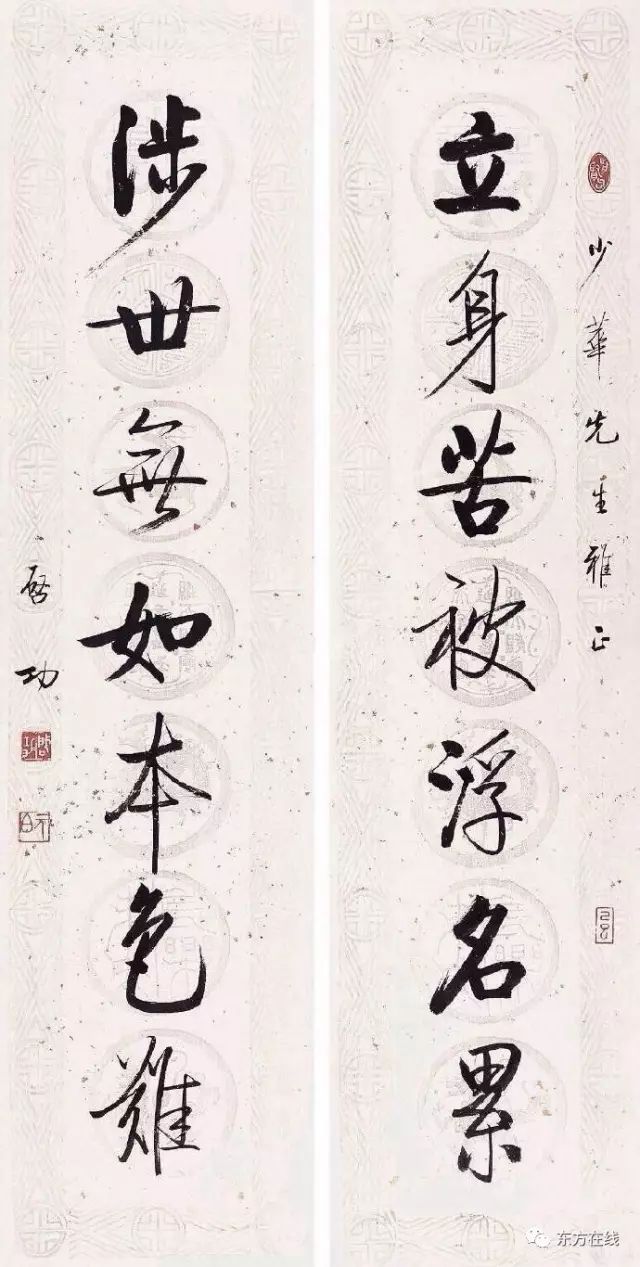 少華先生雅正
立身苦被浮名累
涉世無如本色難
啓功
東方在线